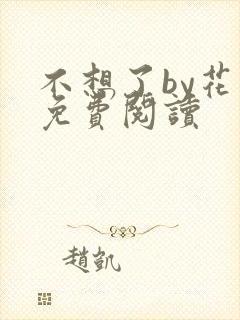 不想了by花
免費閱讀
趙凱